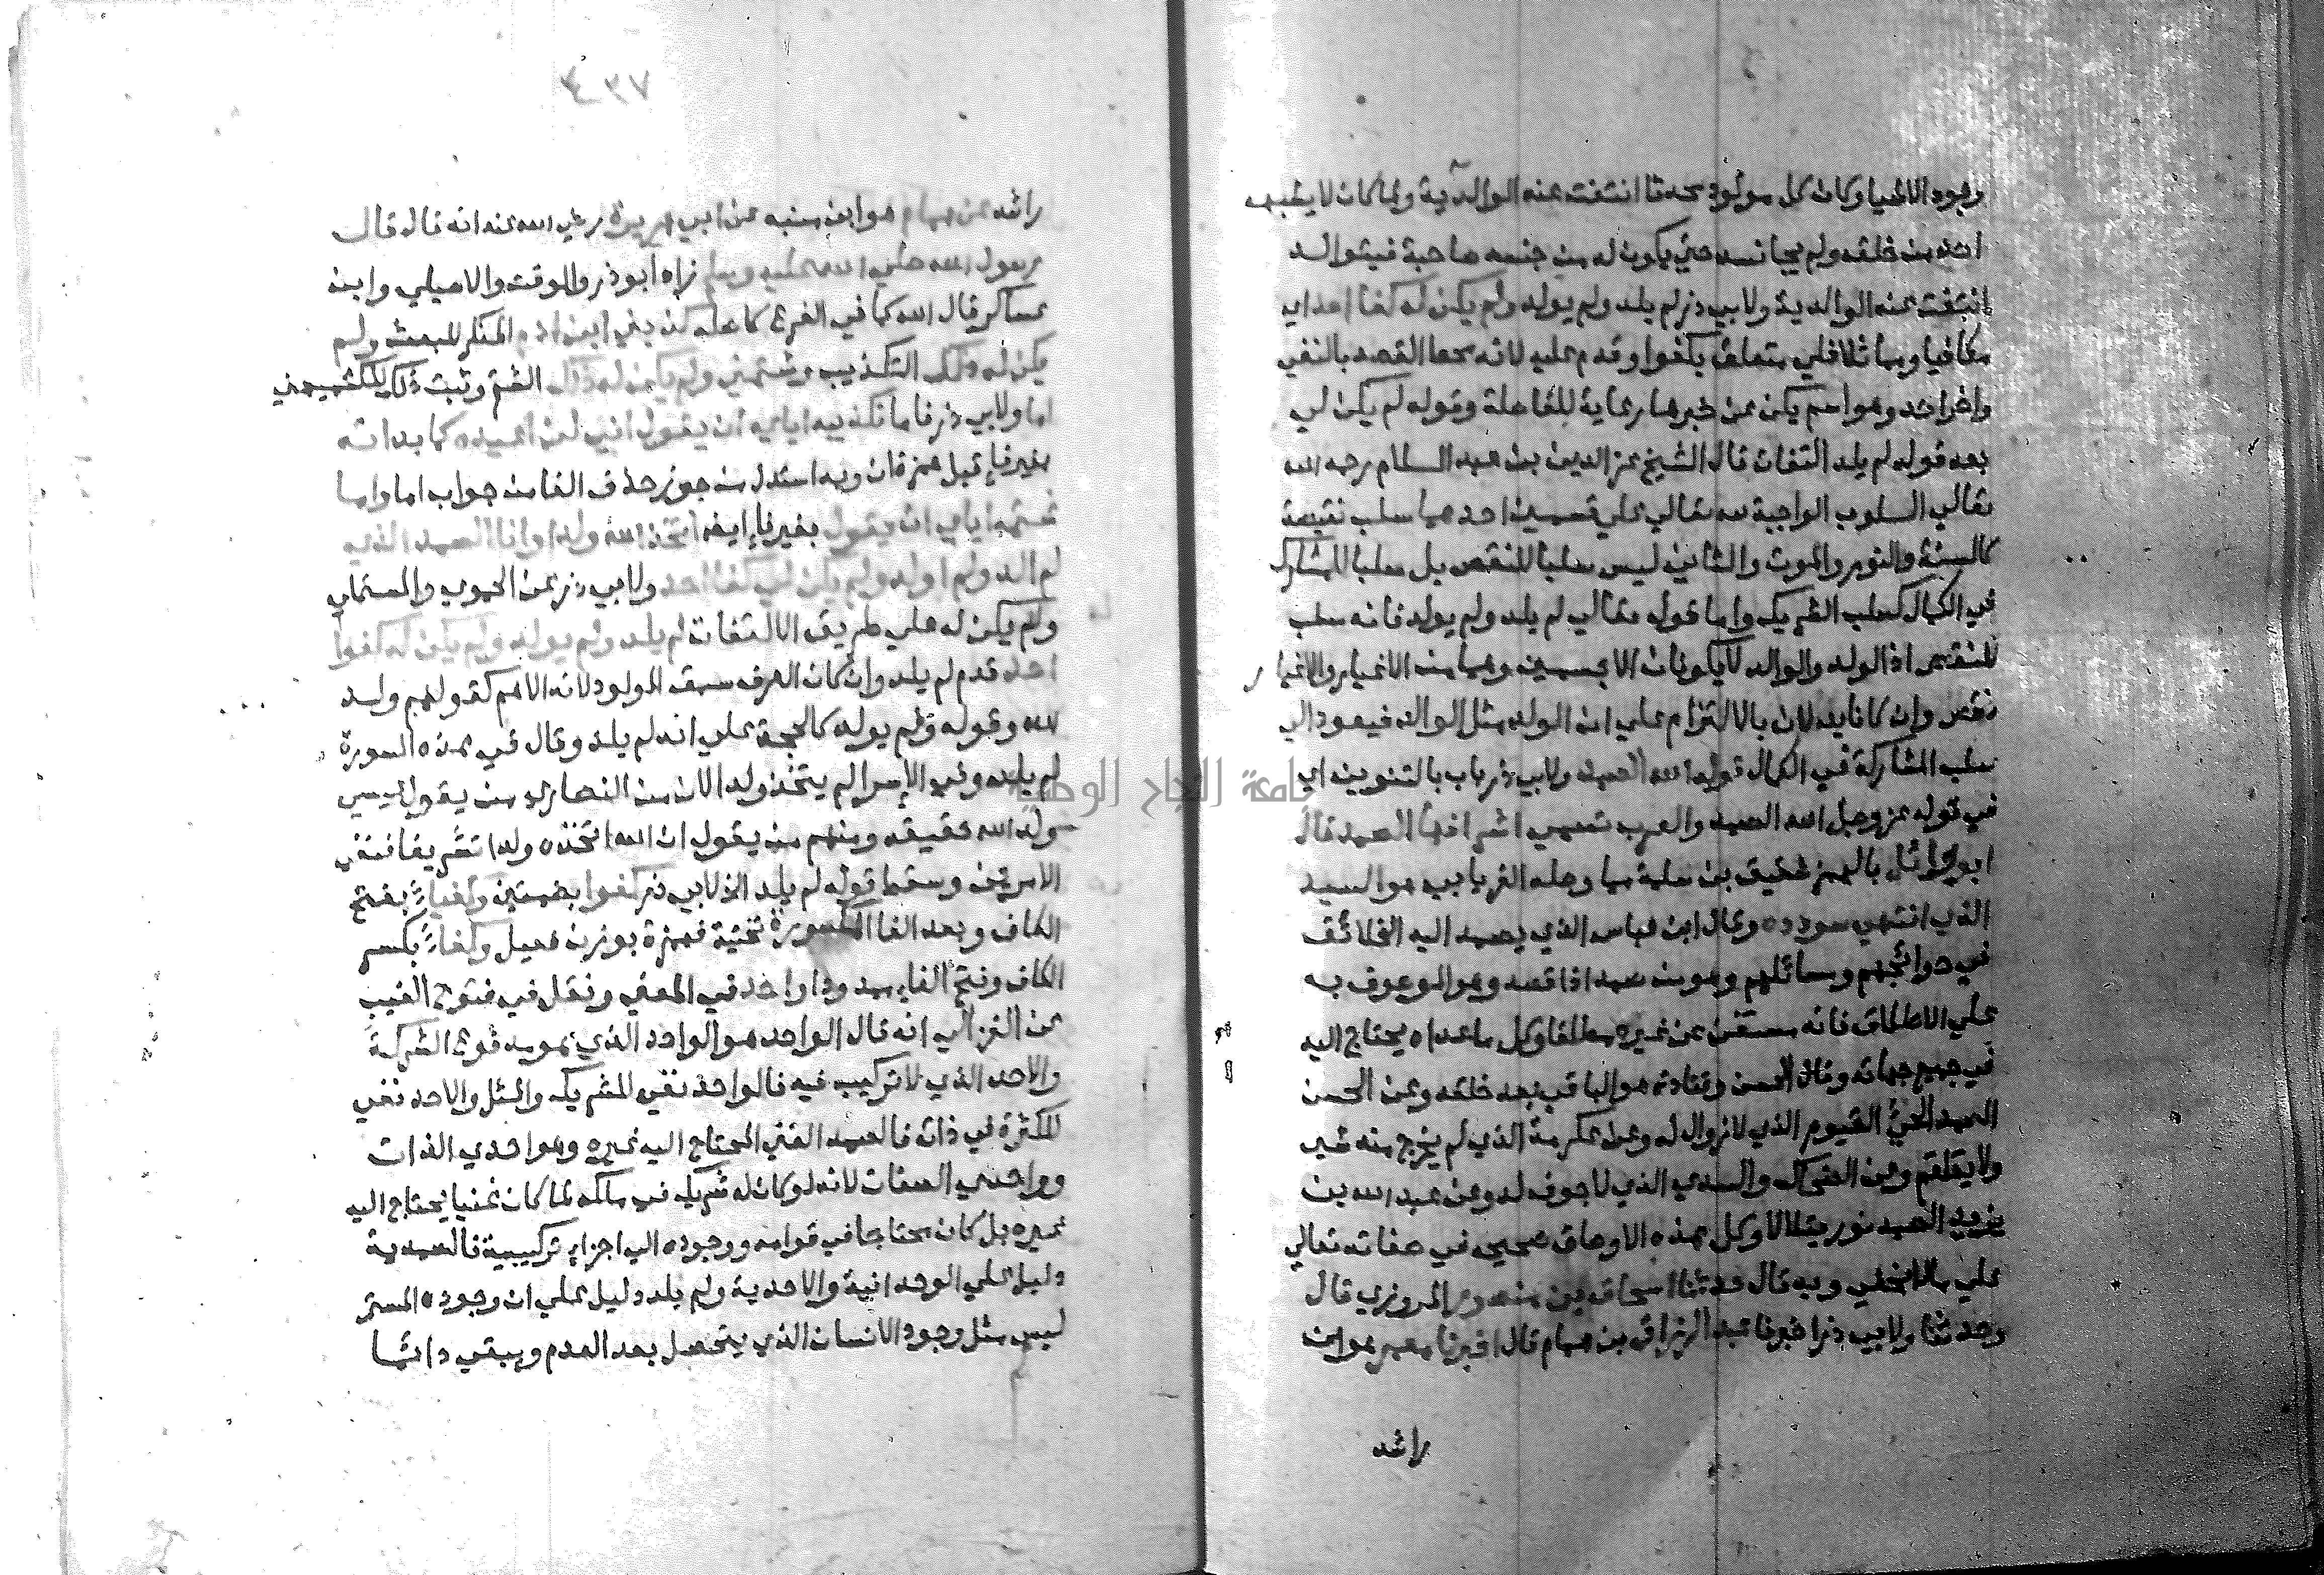 وجود الاشيا وكان كل مولود محدثا انتفت عنه الوالدية ولما كان لا يشبهه
احد من خلقه ولم يجانسه حتي يكون له من جنسه صاحبة فيتوالد
انتفت عنه الوالدية ولابي ذر لم يلد ولم يولد ولم يكن له كفا احد اي
مكافيا ومماثلا فلي متعلق بكفوا وقدم عليه لانه محط القصد بالنفي
واخر احد وهو اسم يكن عن خبرها رعاية للفاصلة وقوله لم يكن لي
بعد قوله لم يلد التفات قال الشيخ عز الدين بن عبد السلام رحمه الله
تعالي السلوب الواجبة لله تعالي علي قسمين احدهما سلب نقيصة
كالسنة والنوم والموت والثاني ليس سلبا للنقص بل سلبا للمشارك
في الكمال كسلب الشريك واما قوله تعالي لم يلد ولم يولد فانه سلب
للنقص اذ الولد والوالد لا يكونان الا جسمين وهما من الاغيار والاغيار
نقص وان كانا يدلان بالالتزام علي ان الولد مثل الوالد فيعود الي
سلب المشاركة في الكمال قوله الله الصمد ولابي ذر باب بالتنوين اي
في قوله عز وجل الله الصمد والعرب تسمي اشرافها الصمد قال
ابو وائل بالهمز شقيق بن سلمة مما وصله الفريابي هو السيد
الذي انتهي سودده وقال ابن عباس الذي يصمد اليه الخلائق
في حوائجهم ومسائلهم وهو من صمد اذا قصد وهو الموصوف به
علي الاطلاق فانه مستغن عن غيره مطلقا وكل ما عداه يحتاج اليه
في جميع جهاته وقال الحسن وقتادة هو الباقي بعد خلقه وعن الحسن
الصمد الحي القيوم الذي لا زوال له وعن عكرمة الذي لم يخرج منه شي
ولا يطعم وعن الضحاك والسدي الذي لا جوف له وعن عبد الله بن
يزيد الصمد نور يتلالا وكل هذه الاوصاف صحيحه في صفاته تعالي
علي ما لا يخفي وبه قال حدثنا اسحاق بن منصور المروزي قال
وحدثنا ولابي ذر اخبرنا عبد الرزاق بن همام قال اخبرنا معمر هو ابن
راشد
راشد عن همام هو ابن منبه عن ابي هريرة رضي الله عنه انه قال قال
رسول الله صلي الله عليه وسلم زاد ابو ذر والوقت والاصيلي وابن
عساكر قال الله كما في الفرع كاصله كذبني ابن ادم المنكر للبعث ولم
يكن له ذلك التكذيب وشتمني ولم يكن له ذلك الشتم وثبت ذلك للكشميهني
اما ولابي ذر فاما تكذيبه اياي ان يقول اني لن اعيده كما بداته
بغير فا قبل همزة ان وبه استدل من جوز حذف الفا من جواب اما واما
شتمه اياي ان يقول بغير فا ايضا اتخذ الله ولدا وانا الصمد الذي
لم الد ولم اولد ولم يكن لي كفا احد ولابي ذر عن الحموي والمستملي
ولم يكن له علي طريق الالتفات لم يلد ولم يولد ولم يكن له كفوا
احد قدم لم يلد وان كان العرف سبق المولود لانه الاهم كقولهم ولد
الله وقوله ولم يولد كالحجة علي انه لم يلد وقال في هذه السورة
لم يلد وفي الاسرا لم يتخذ ولدا لان من النصاري من يقول عيسي
ولد الله حقيقه ومنهم من يقول ان الله اتخذه ولدا تشريفا فنفي
الامرين وسقط قوله لم يلد الخ لابي ذر كفوا بضمتين وكفيا بفتح
الكاف وبعد الفا المكسورة تحتية فهمزة بوزن فعيل وكفا بكسر
الكاف وفتح الفا ممدودا واحد في المعني ونقل في فتوح الغيب
عن الغزالي انه قال الواحد هو الواحد الذي هو مدفوع الشركة
والاحد الذي لا تركيب فيه فالواحد نفي للشريك والمثل والاحد نفي
للكثرة في ذاته فالصمد الغني المحتاج اليه غيره وهو احدي الذات
وواحدي الصفات لانه لو كان له شريك في ملكه لما كان غنيا يحتاج اليه
غيره بل كان محتاجا في قوامه ووجوده الي اجزاء تركيبية فالصمدية
دليل علي الوحدانية والاحدية ولم يلد دليل علي ان وجوده المستمر
ليس مثل وجود الانسان الذي يتحصل بعد العدم ويبقي دائما
جامعة النجاح الوطنية